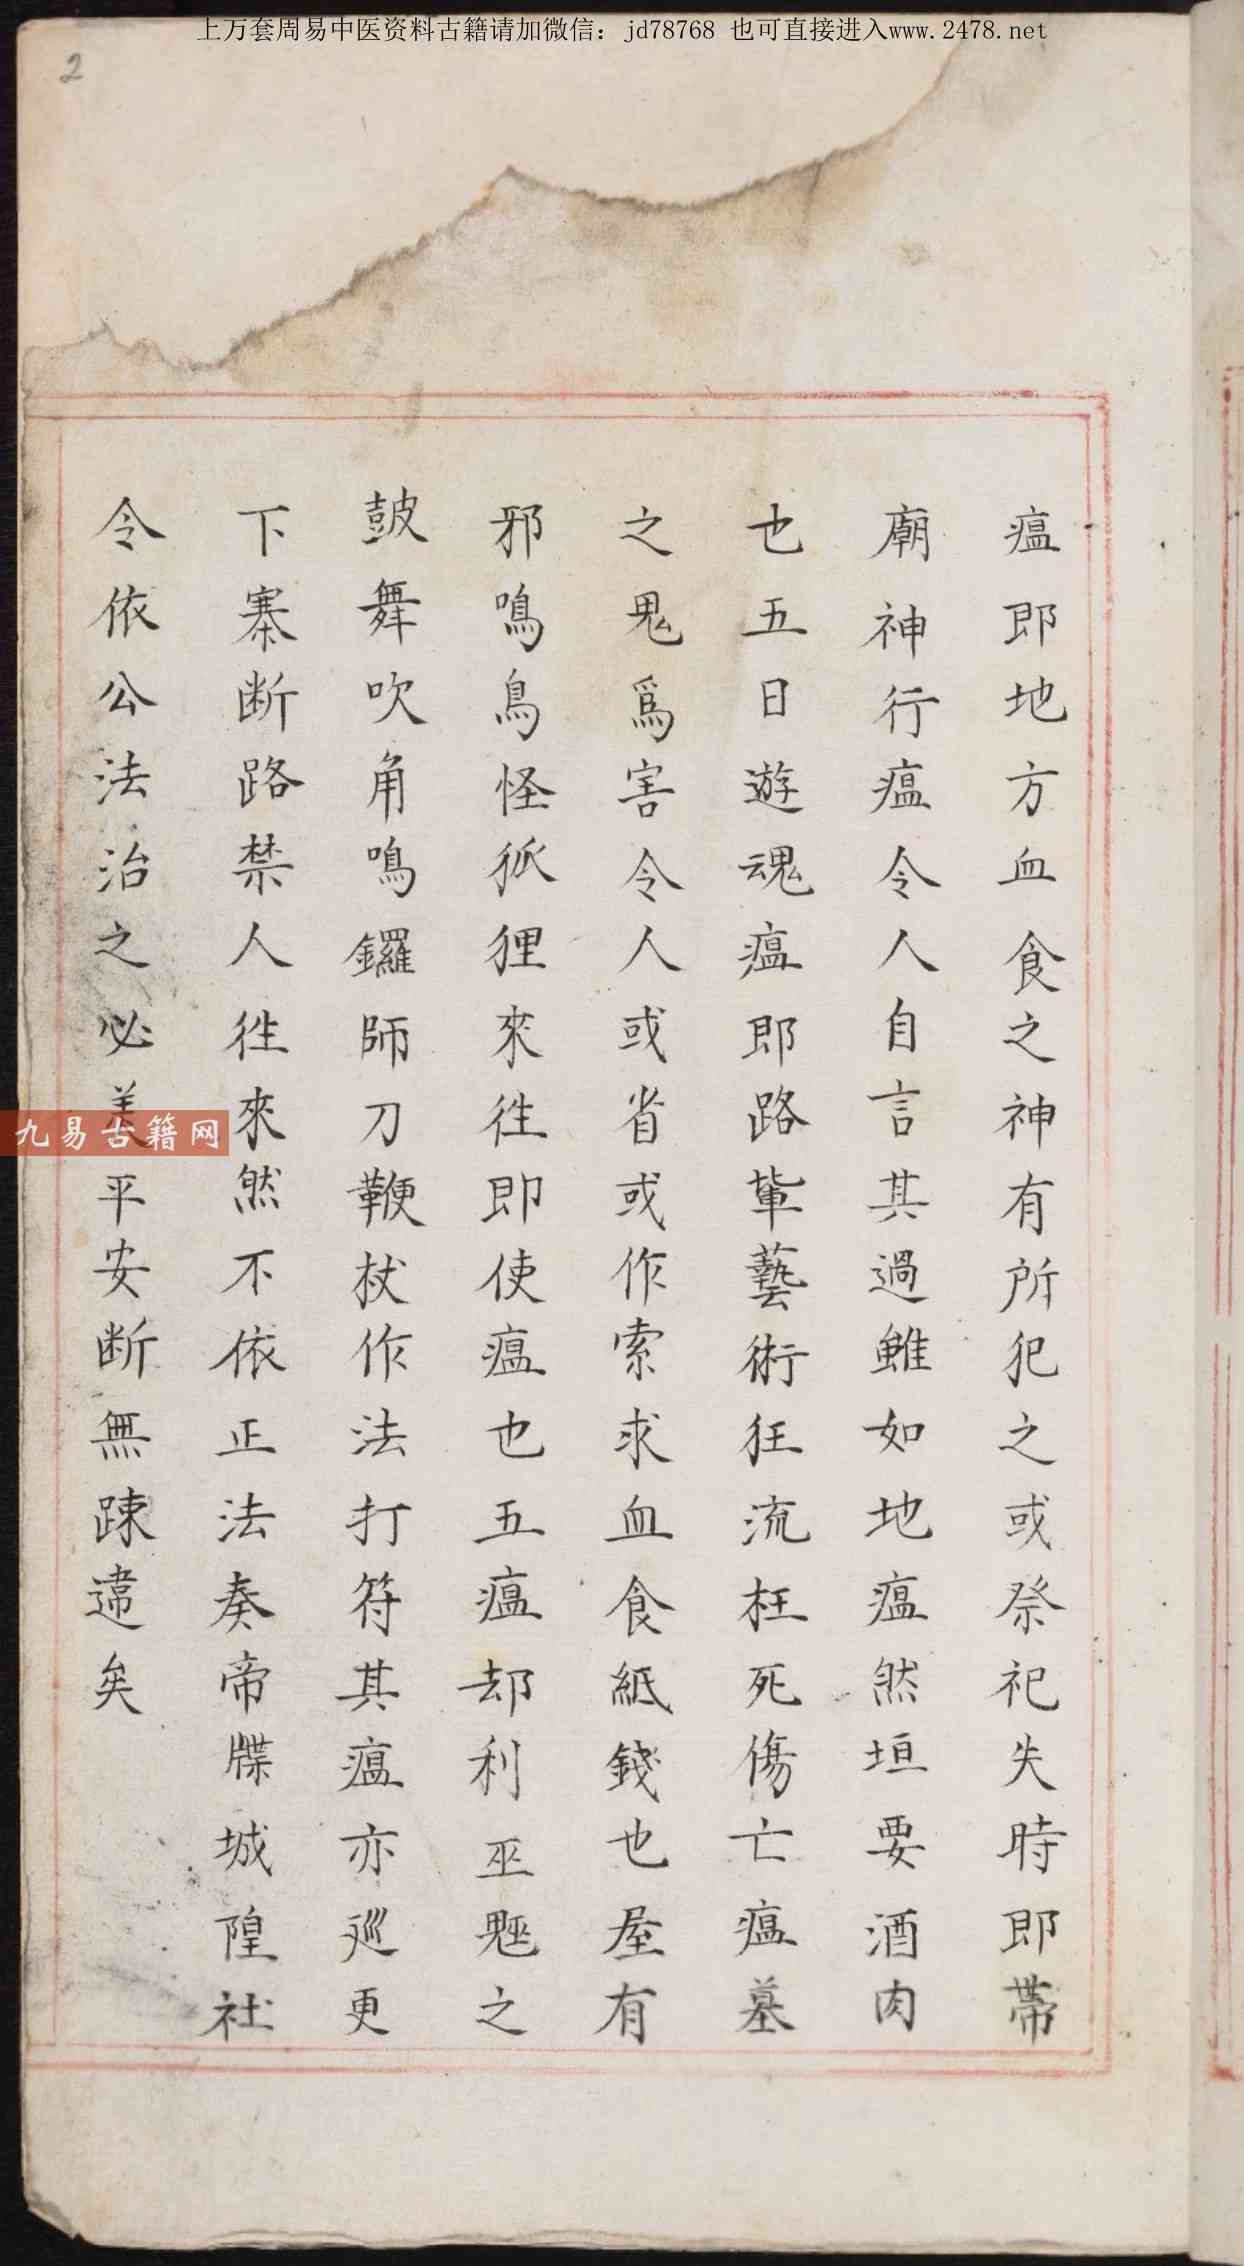 上万套周易中医资料古籍请加微信：jd78768 也可直接进入www.2478.net
2
瘟即地方血食之神有所犯之或祭祀失時即帶
廟神行瘟令人自言其過雖如地瘟然垣要酒肉
也五日遊魂瘟即路輋藝術狂流枉死傷亡瘟墓
之鬼爲害令人或省或作索求血食紙錢也屋有
邪鳴鳥怪狐狸來徃即使瘟也五瘟却利巫魘之
皷舞吹角鳴鑼師刀鞭杖作法打符其瘟亦巡更
下寨断路禁人徃來然不依正法奏帝牒城隍社
令依公法治之必差平安断無踈違矣
九易古籍网